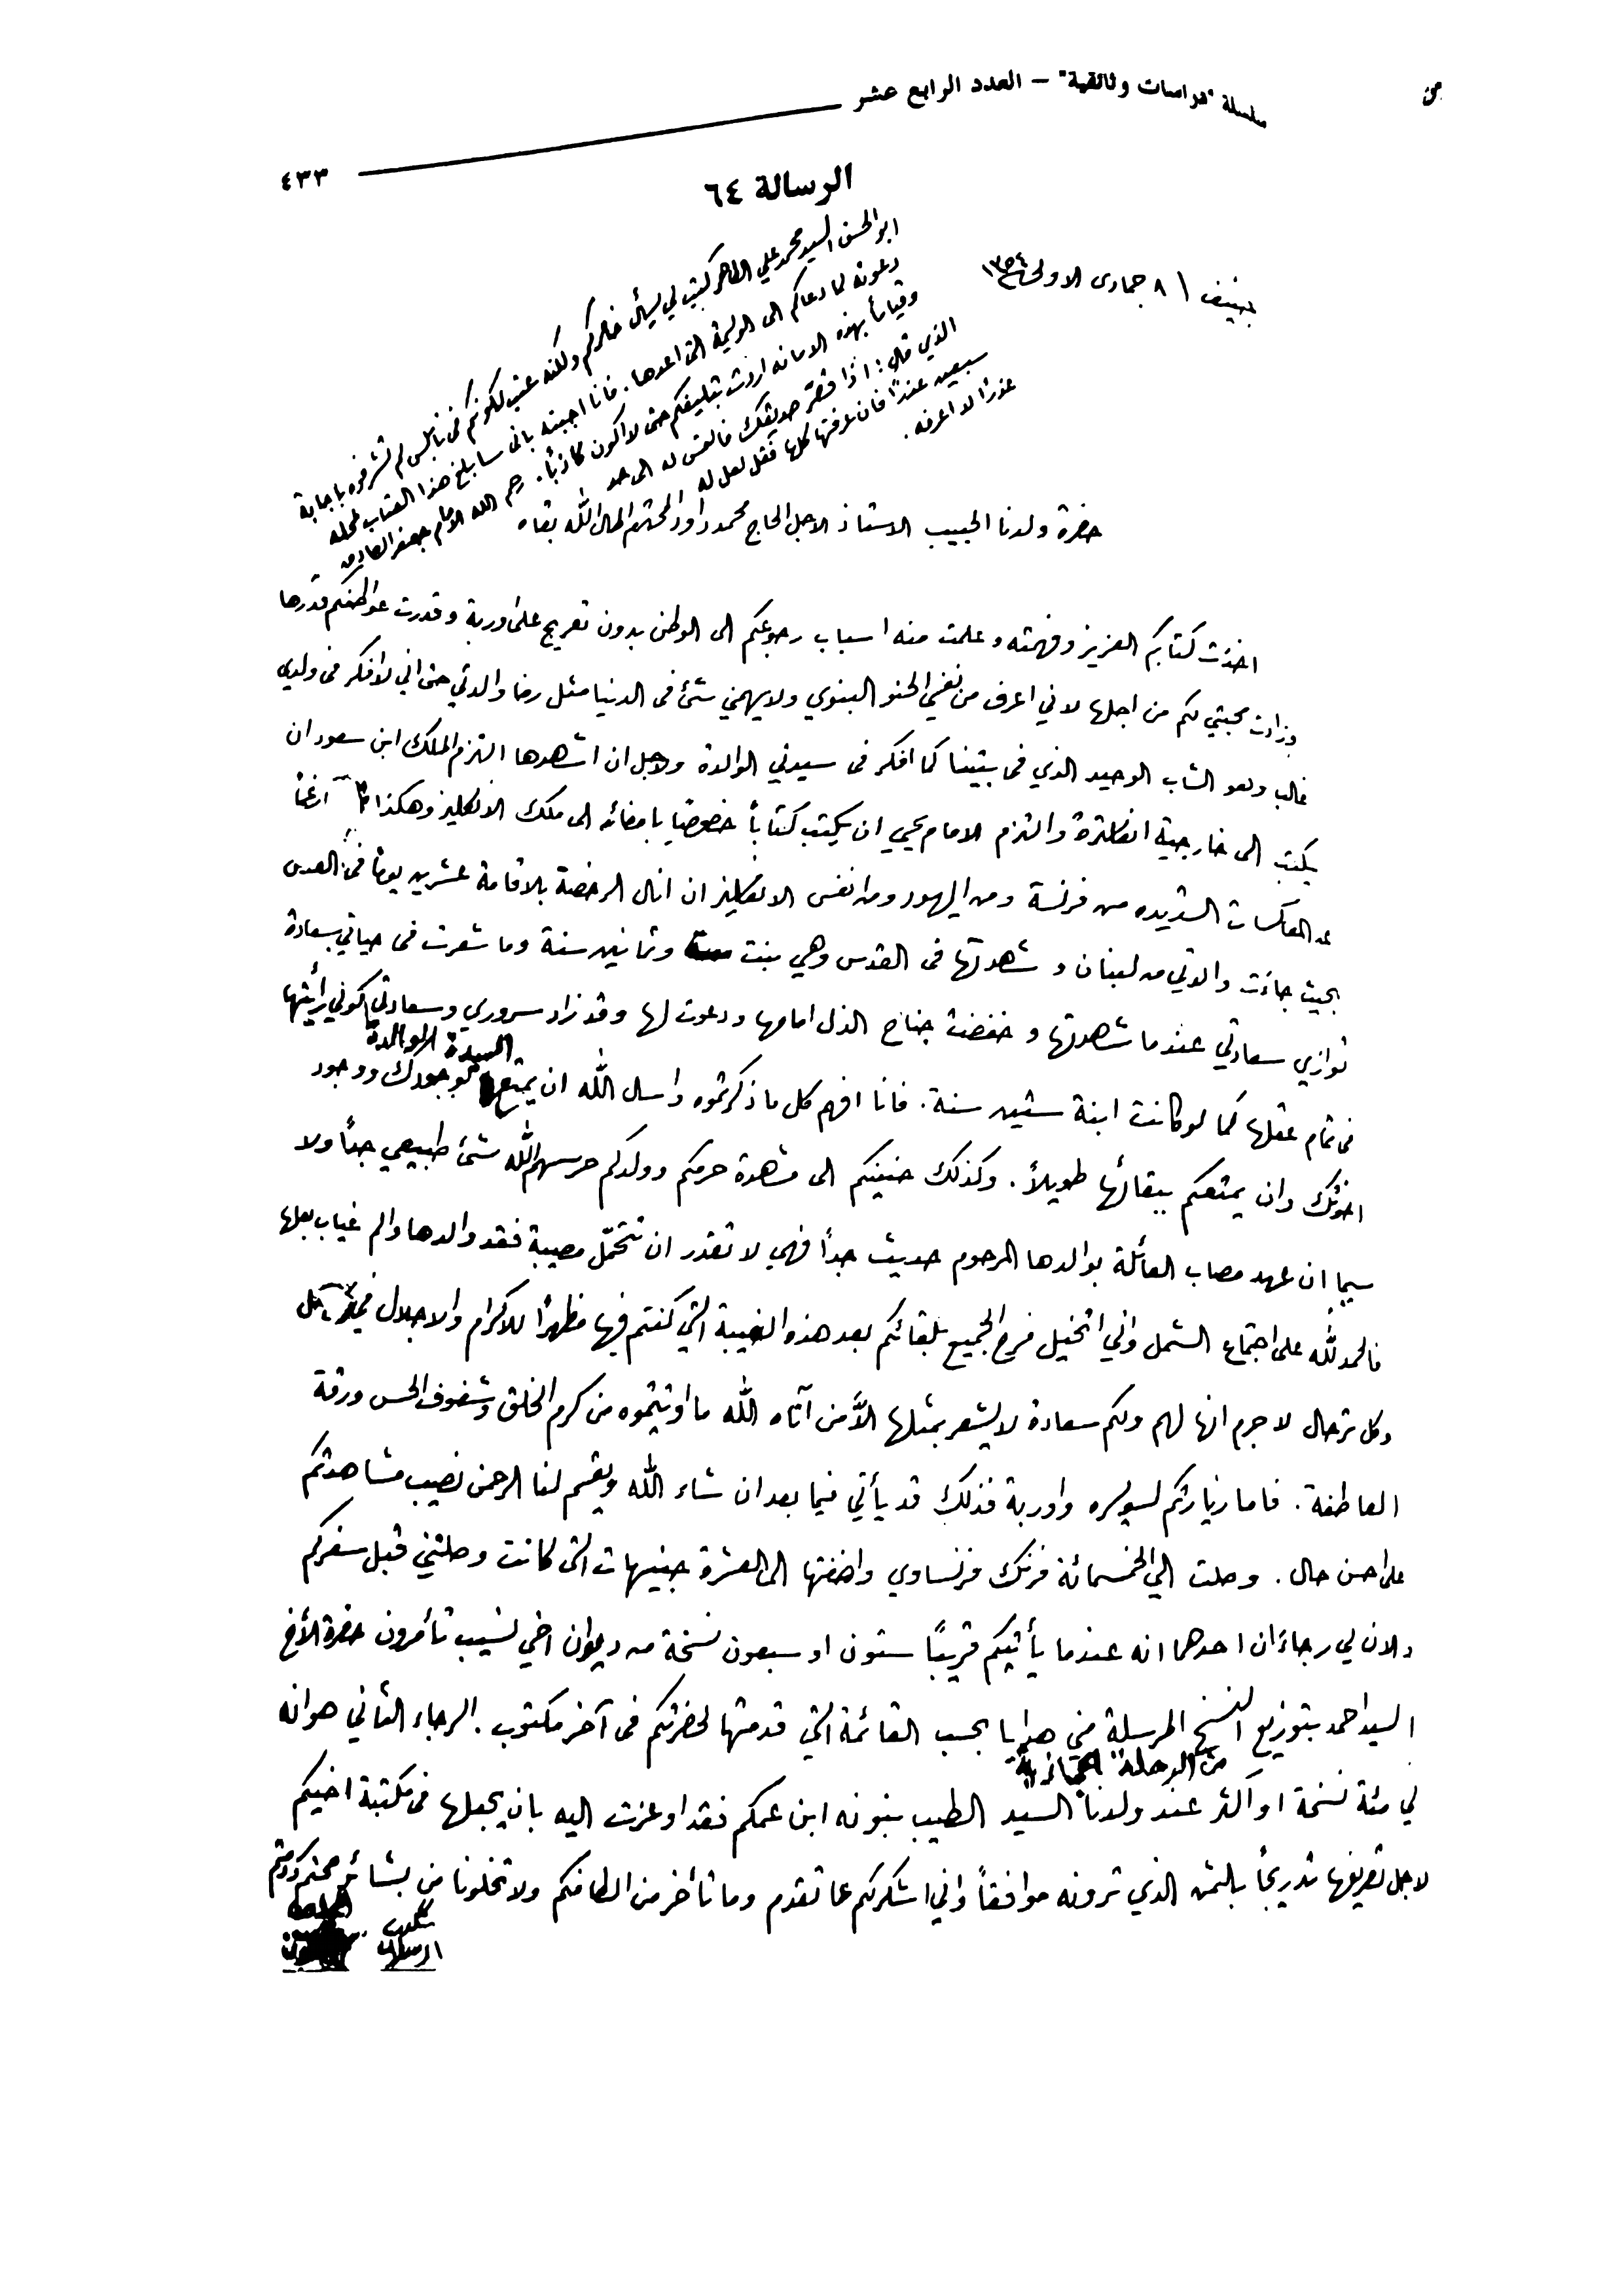 سلسلة "دراسات وثائقية" – العدد الرابع عشر
٤٣٣
الرسالة ٦٤
جنيف ٨ جمادى الاولى ١٣٥٤
ابو الحسن السيد محمد علي الطاهر كتب لي يسأل خاطركم ولكنه عتب لكونكم في نابلس لم تشرفوه باجابة
دعوته لما دعاكم الى الوليمة التي اعدها. فانا اجبته باني سابلغ هذا العتاب لمحله
وقياماً بهذه الامانة اردت تبليغكم حتى لا اكون كاذباً. رحم الله الامام جعفر الصادق
الذي قال: اذا قصّر صديقك فالتمس له الى حد
سبعين عذراً فان عرفتها كلها فقل لعل له
عذراً لا اعرفه.
حضرة ولدنا الحبيب الاستاذ الاجل الحاج محمد داود المحترم اطال الله بقاه
اخذت كتابكم العزيز وفهمته وعلمت منه اسباب رجوعكم الى الوطن بدون تعريج على اوربة وقدرت عواطفكم قدرها
وزادت محبتي لكم من اجلها لاني اعرف من نفسي الحنو البنوي ولا يهمني شئ في الدنيا مثل رضا والدتي حتى اني لا افكر في ولدي
غالب وهو الشاب الوحيد الذي في بيتنا كما افكر في سيدتي الوالدة ولاجل ان اشهدها التزم الملك ابن سعود ان
يكتب الى خارجية انكلترة والتزم الامام يحيي ان يكتب كتاباً خصوصياً بامضائه الى ملك الانكليز وهكذا ارغماً
عن المعاكسات الشديده من فرنسة ومن اليهود ومن انفس الانكليز ان انال الرخصة بالاقامة عشرين يوماً في القدس
بحيث جاءت والدتي من لبنان وشهدتها في القدس وهي بنت وثمانين سنة وما شعرت في حياتي بسعادة
توازي سعادتي عندما شهدتها وخفضت جناح الذل امامها ودعوت لها وقد زاد سروري وسعادتي كوني رأيتها
في تمام عقلها كما لو كانت ابنة ستين سنة. فانا افهم كل ما ذكرتموه واسال الله ان يمتع السيدة الوالدة بوجودك ووجود
اخوتك وان يمتعكم ببقائها طويلاً. وكذلك حنينكم الى مشهدة حرمكم وولدكم حرسهم الله شئ طبيعي جداً ولا
سيما ان عهد مصاب العائلة بوالدها المرحوم حديث جداً فهي لا تقدر ان تتحمّل مصيبة فقد والدها والم غياب بعلها
فالحمد لله على اجتماع الشمل واني اتخيل فرح الجميع بلقائكم بعد هذه الغيبة التي كنتم فيها مظهراً للاكرام والاجلال في كل حل
وكل ترحال لا جرم انها لهم ولكم سعادة لا يشعر بمثلها الاّ من آتاه الله ما اوتيتموه من كرم الخلق وشفوف الحس ورقة
العاطفة. فاما زيارتكم لسويسره واوربة فذلك قد يأتي فيما بعد ان شاء الله ويقسم لنا الرحمن نصيب مشاهدتكم
على احسن حال. وصلت الي الخمسمائة فرنك فرنساوي واضفتها الى العشرة جنيهات التي كانت وصلتني قبل سفركم
والان لي رجاءان احدهما انه عندما يأتيكم قريباً ستون او سبعون نسخة من ديوان اخي نسيب تأمرون حضرة الأخ
السيد احمد بتوزيع النسخ المرسلة مني هدايا بحسب القائمة التي قدمتها لحضرتكم في آخر مكتوب. الرجاء الثاني هو انه
لي مئة نسخة او اكثر من الرحلة الحجازية عند ولدنا السيد الطيب بنونه ابن عمكم فقد اوعزت اليه بان يجعلها في مكتبة اخيكم
لاجل تصريفها تدريجاً بالثمن الذي ترونه موافقاً واني اشكركم عما تقدم وما تأخر من الطافكم ولا تخلونا من بشائر صحتكم ودمتم
المخلص
شكيب ارسلان